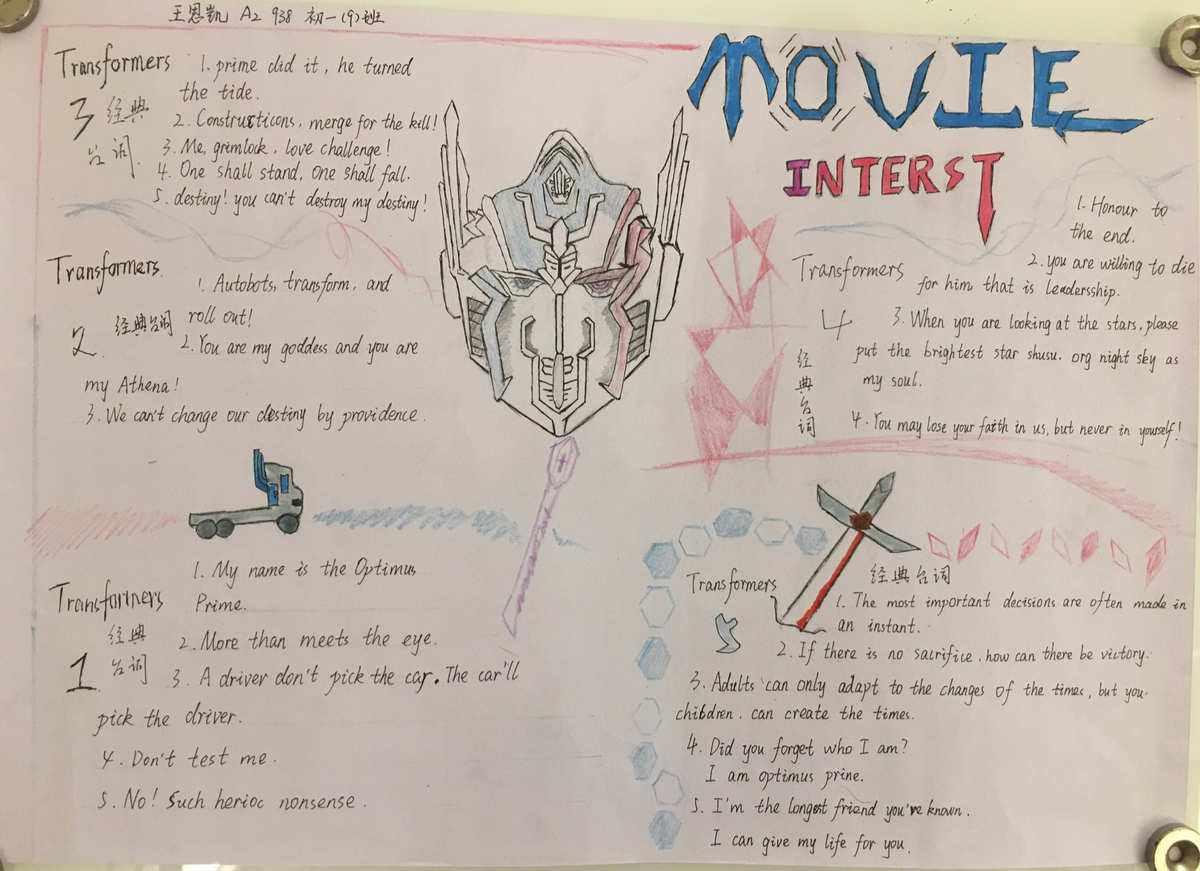 王恩凯 A2 938 初一(9)班
MOVIE
INTERST
Transformers
3 经典
台词
1. prime did it, he turned
the tide.
2. Constructicons, merge for the kill!
3. Me, grimlock, love challenge!
4. One shall stand, One shall fall.
5. destiny! you can't destroy my destiny!
Transformers
2 经典台词
1. Autobots, transform, and
roll out!
2. You are my goddess and you are
my Athena!
3. We can't change our destiny by providence.
Transformers
经典
1 台词
1. My name is the Optimus
Prime.
2. More than meets the eye.
3. A driver don't pick the car. The car'll
pick the driver.
4. Don't test me.
5. No! Such herioc nonsense.
Transformers
4
经典台词
1. Honour to
the end.
2. you are willing to die
for him, that is leadersship.
3. When you are looking at the stars, please
put the brightest star shusu. org night sky as
my soul.
4. You may lose your faith in us, but never in yourself!
Transformers
经典台词
1. The most important decisions are often made in
an instant.
2. If there is no sacrifice, how can there be victory.
3. Adults can only adapt to the changes of the times, but you
chibdren. can create the times.
4. Did you forget who I am?
I am optimus prine.
5. I'm the longest friend you've known.
I can give my life for you.